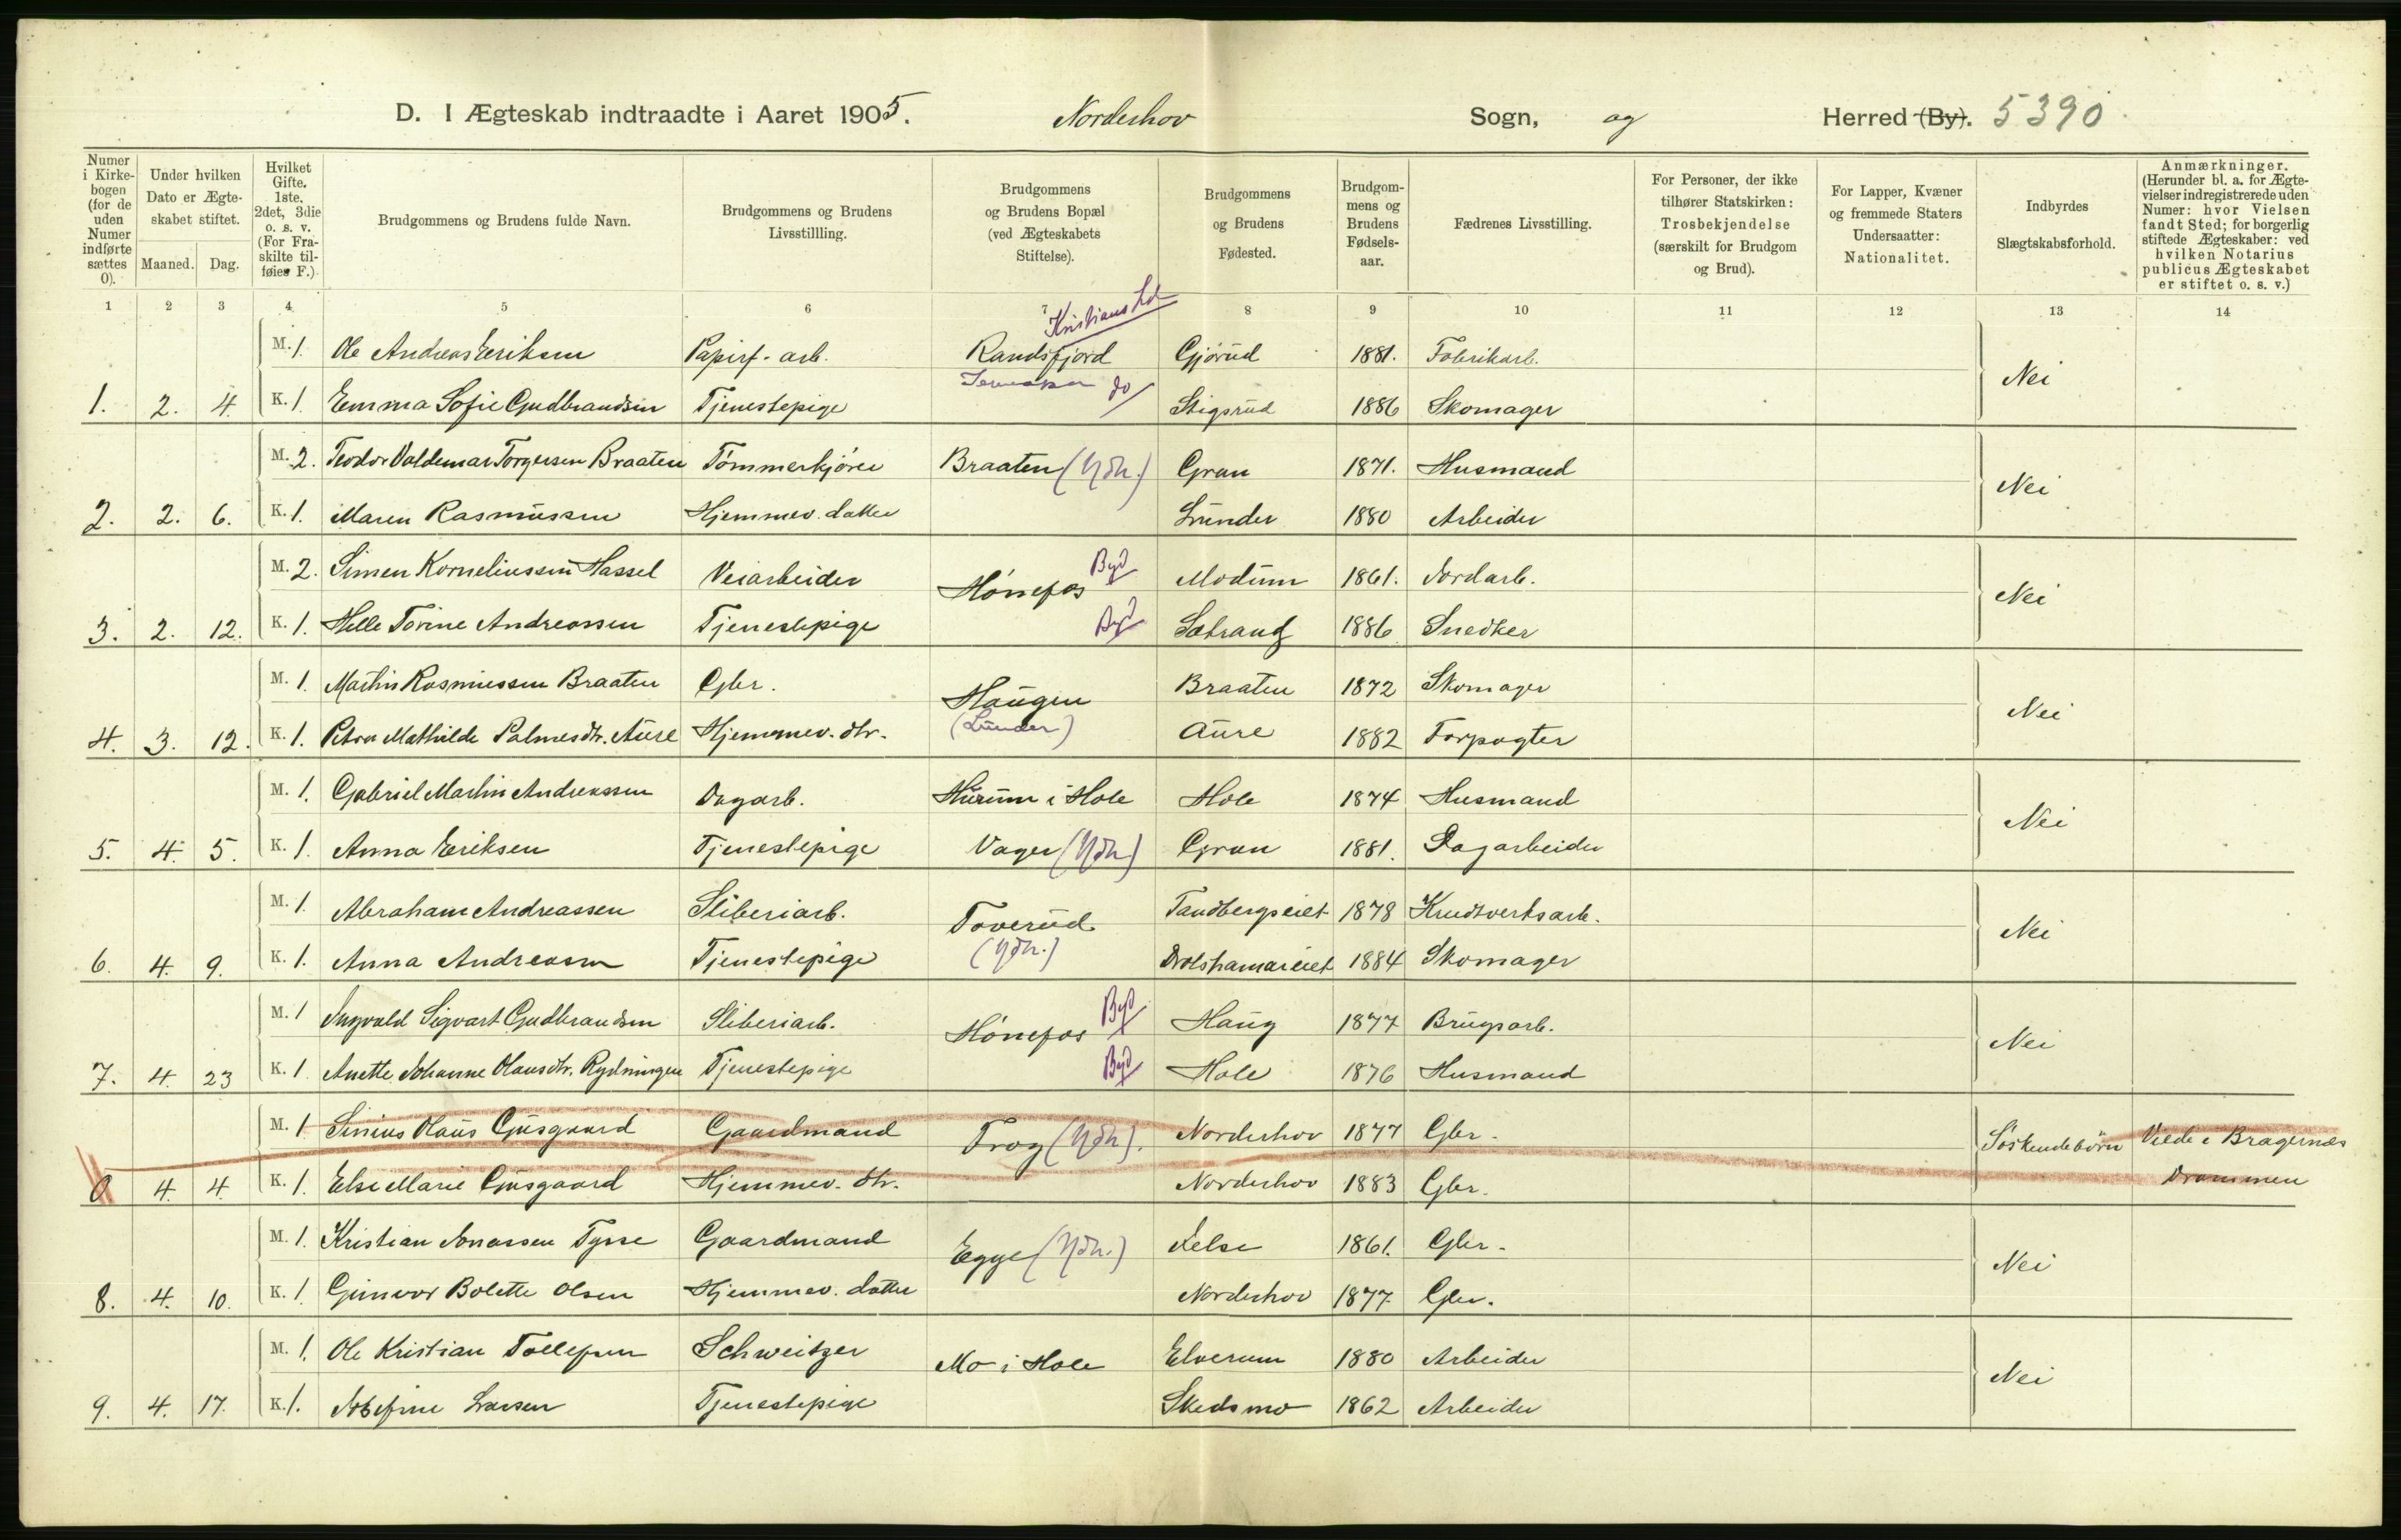 D. I Ægteskab indtraadte i Aaret 1905. Norderhov Sogn, og Herred (By). 5390
Numer i Kirkebogen (for de uden Numer indførte sættes 0).
Under hvilken Dato er Ægteskabet stiftet.
Maaned. Dag.
Hvilket Gifte. 1ste. 2det, 3die o. s. v. (For Fraskilte tilføies F.)
Brudgommens og Brudens fulde Navn.
Brudgommens og Brudens Livsstillling.
Brudgommens og Brudens Bopæl (ved Ægteskabets Stiftelse).
Brudgommens og Brudens Fødested.
Brudgommens og Brudens Fødselsaar.
Fædrenes Livsstilling.
For Personer, der ikke tilhører Statskirken: Trosbekjendelse (særskilt for Brudgom og Brud).
For Lapper, Kvæner og fremmede Staters Undersaatter: Nationalitet.
Indbyrdes Slægtskabsforhold.
Anmærkninger. (Herunder bl. a. for Ægtevielser indregistrerede uden Numer: hvor Vielsen fandt Sted; for borgerlig stiftede Ægteskaber: ved hvilken Notarius publicus Ægteskabet er stiftet o. s. v.)
1 2 3 4 5 6 7 8 9 10 11 12 13 14
Kristians
M. 1. Ole Andreas Eriksen Papirf.-arb. Randsfjord Gjørud 1881. Fabrikarb. Nei
1. 2. 4. K. 1 Emma Sofie Gudbrandsen Tjenestepige do Stigsrud 1886 Skomager
M. 2. Teodor Valdemar Torgersen Braaten Tømmerkjører Braaten (Ndh.) Gran 1871. Husmand Nei
2. 2. 6. K. 1. Maren Rasmussen Hjemmev. datter Lunder 1880 Arbeider
M. 2. Simen Korneliussen Hassel Veiarbeider Hönefos Byd Modum 1861. Jordarb. Nei
3. 2. 12. K. 1. Helle Torine Andreassen Tjenestepige Byd Sætrang 1886 Snedker
M. 1. Martin Rasmussen Braaten Gbr. Haugen Braaten 1872 Skomager Nei
4. 3. 12. K. 1. Petra Mathilde Palmesdtr. Aure Hjemmev. dtr. (Lunder) Aure 1882 Forpagter
M. 1. Gabriel Martin Andreassen Dagarb. Hurum i Hole Hole 1874 Husmand Nei
5. 4. 5. K. 1. Anna Eriksen Tjenestepige Vager (Ndh) Gran 1881. Dagarbeider
M. 1. Abraham Andreassen Sliberiarb. Toverud Tandbergseiet 1878 Krudtverksarb. Nei
6. 4. 9. K. 1. Anna Andreasen Tjenestepige (Ndh.) Drolshamareiet 1884 Skomager
M. 1 Ingvald Sigvart Gudbrandsen Sliberiarb. Hönefos Byd Haug 1877 Brugsarb. Nei
7. 4. 23 K. 1 Anette Johanne Olausdtr. Rydningen Tjenestepige Byd Hole 1876 Husmand
M. 1 Sinius Olaus Gusgaard Gaardmand Trog (Ndh). Norderhov 1877 Gbr. Söskendebörn Viede i Bragernæs
0 4. 4. K. 1. Else Marie Gusgaard Hjemmev. dtr. Norderhov 1883 Gbr. Drammen
M. 1. Kristian Jonassen Tysse Gaardmand Egge (Ndh.) Jelse 1861. Gbr. Nei
8. 4. 10. K. 1. Gunvor Bolette Olsen Hjemmev. datter Norderhov 1877. Gbr.
M. 1. Ole Kristian Tollefsen Schweitzer Mo i Hole Elverum 1880 Arbeider Nei
9. 4. 17. K. 1. Josefine Larsen Tjenestepige Skedsmo 1862 Arbeider